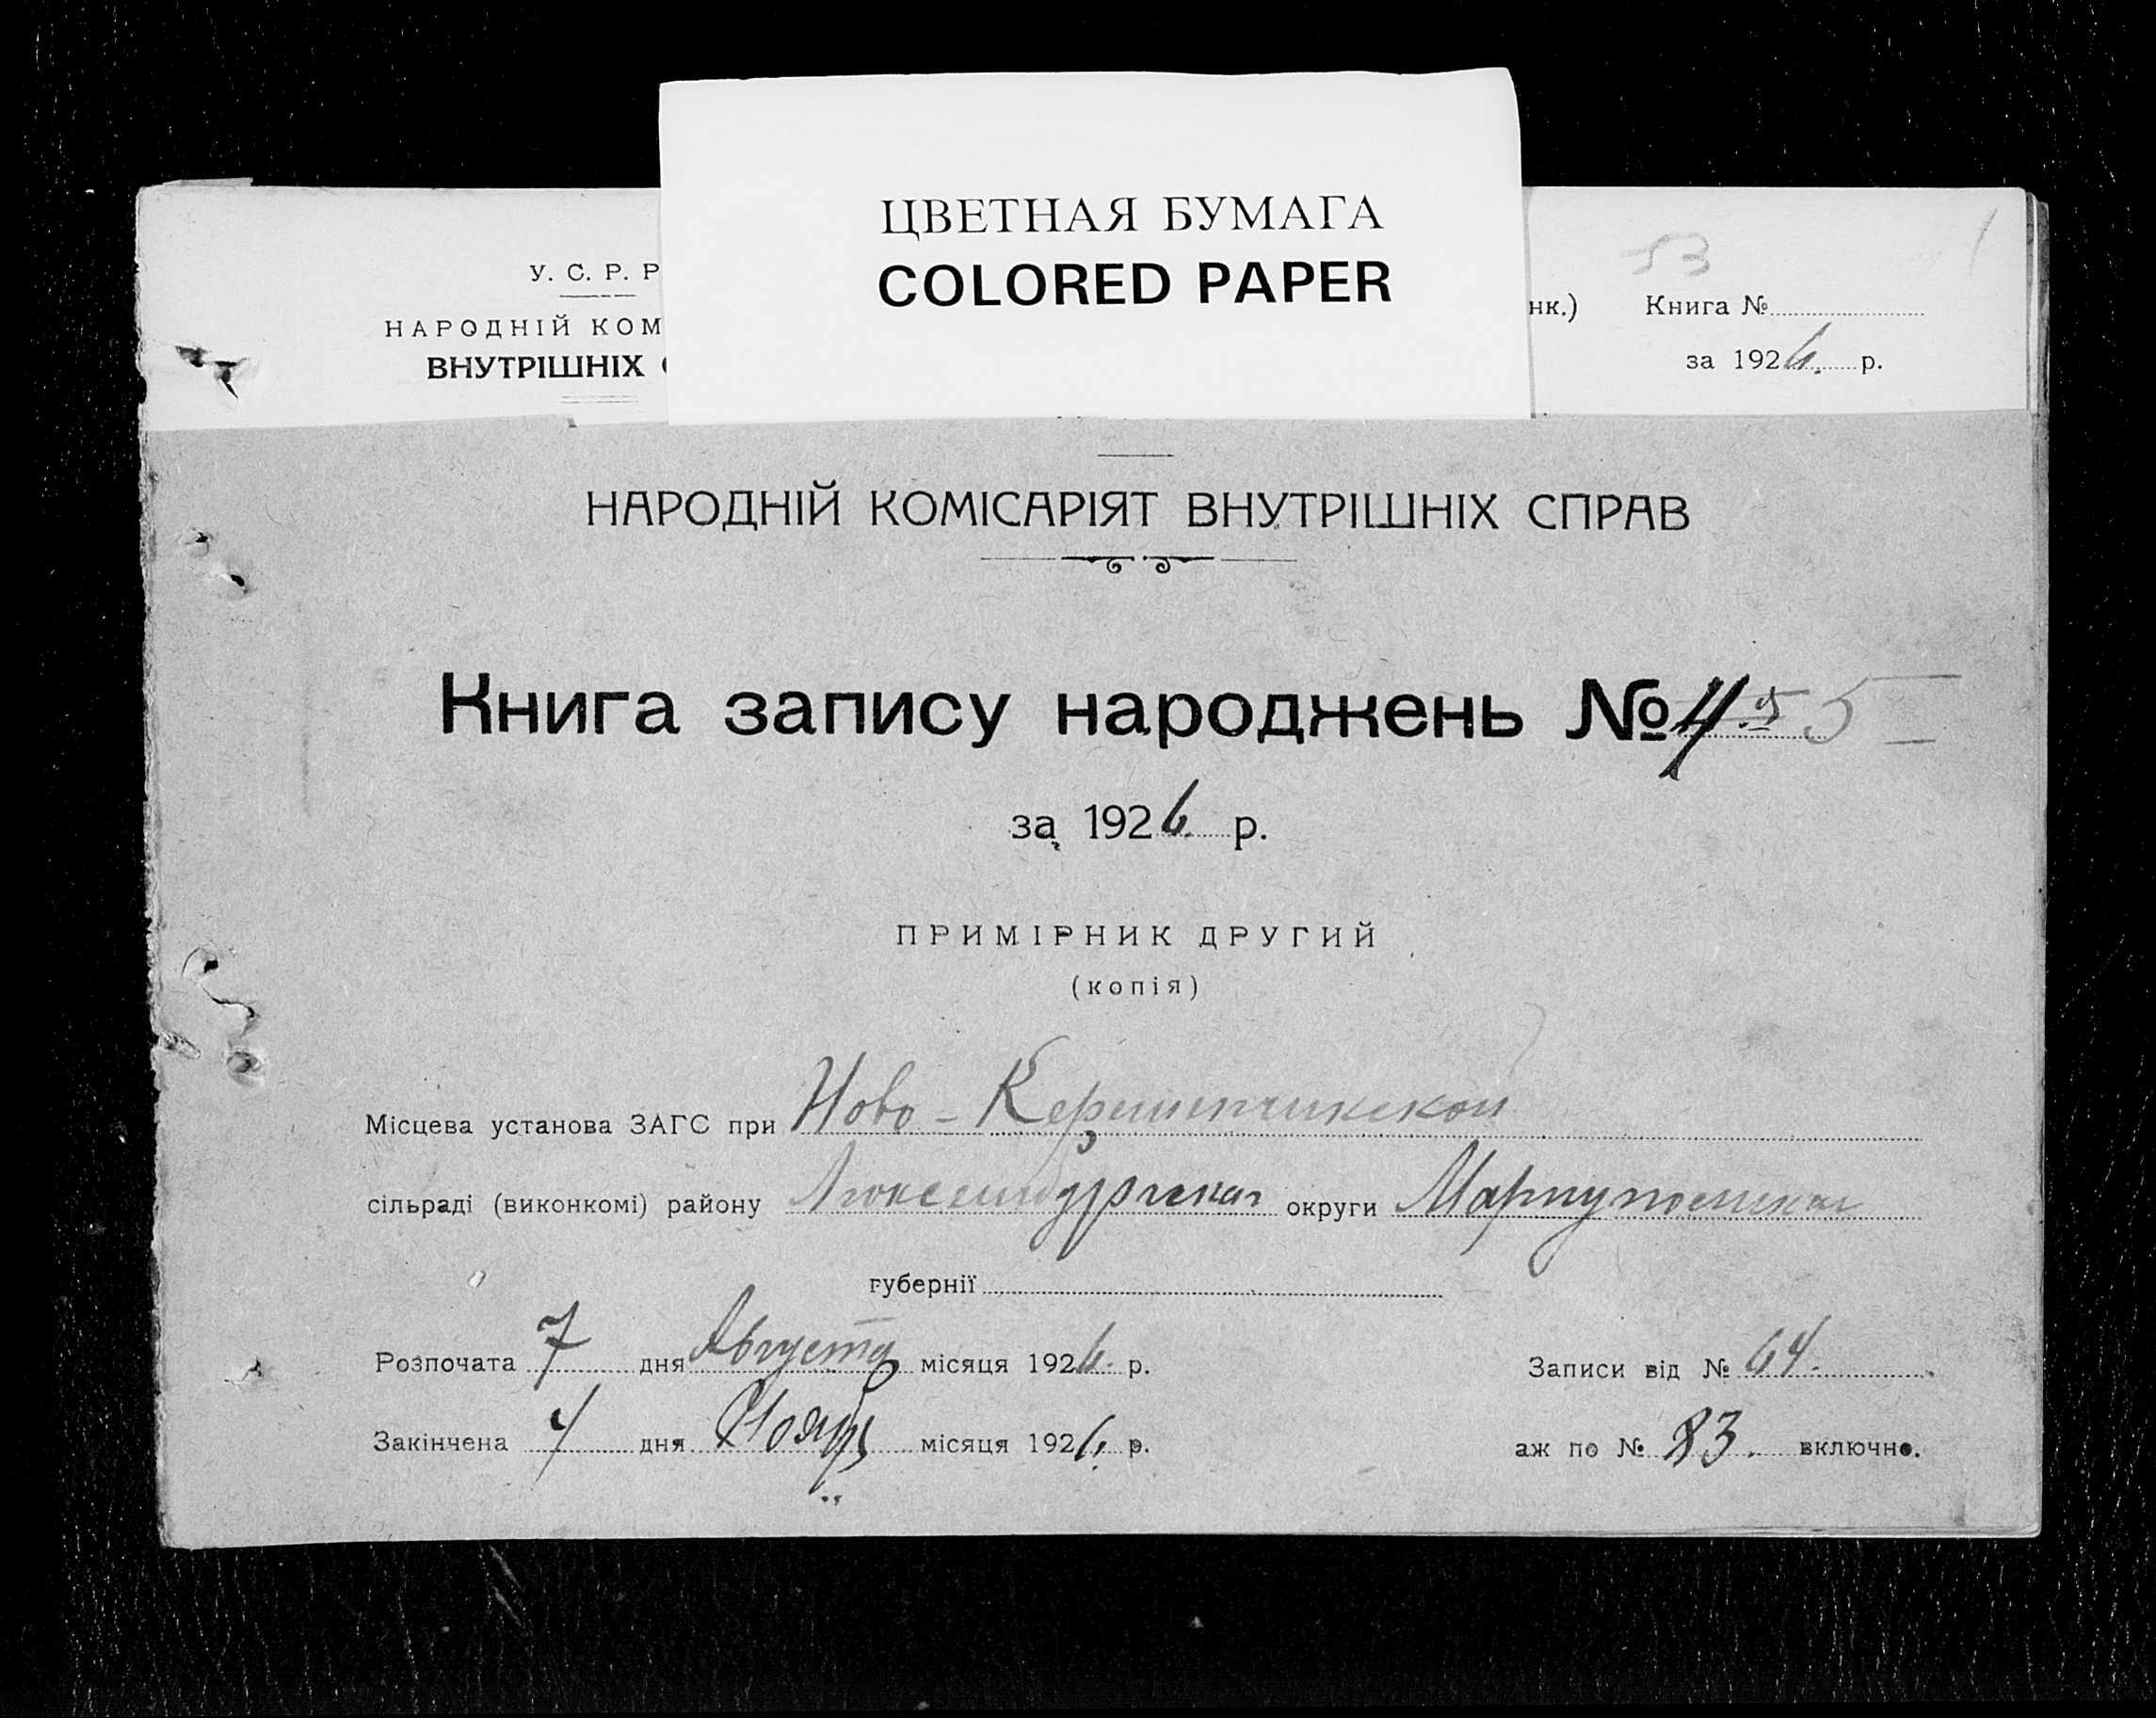 ЦВЕТНАЯ БУМАГА
COLORED PAPER
У. С. Р. Р
НАРОДНІЙ КОМ
ВНУТРІШНІХ
53
нк.) Книга №
за 1926. р.
НАРОДНІЙ КОМІСАРІЯТ ВНУТРІШНІХ СПРАВ
Книга запису народжень № 4 5 5
за 1926. р.
ПРИМІРНИК ДРУГИЙ
(копія)
Місцева установа ЗАГС при Ново-Керменчикской
сільраді (виконкомі) району Люксембургская округи Мариупольская
губернії
Розпочата 7 дня Августа місяця 1926. р.
Записи від № 64.
Закінчена 4 дня Ноябр місяця 1926. р.
аж по № 83. включно.